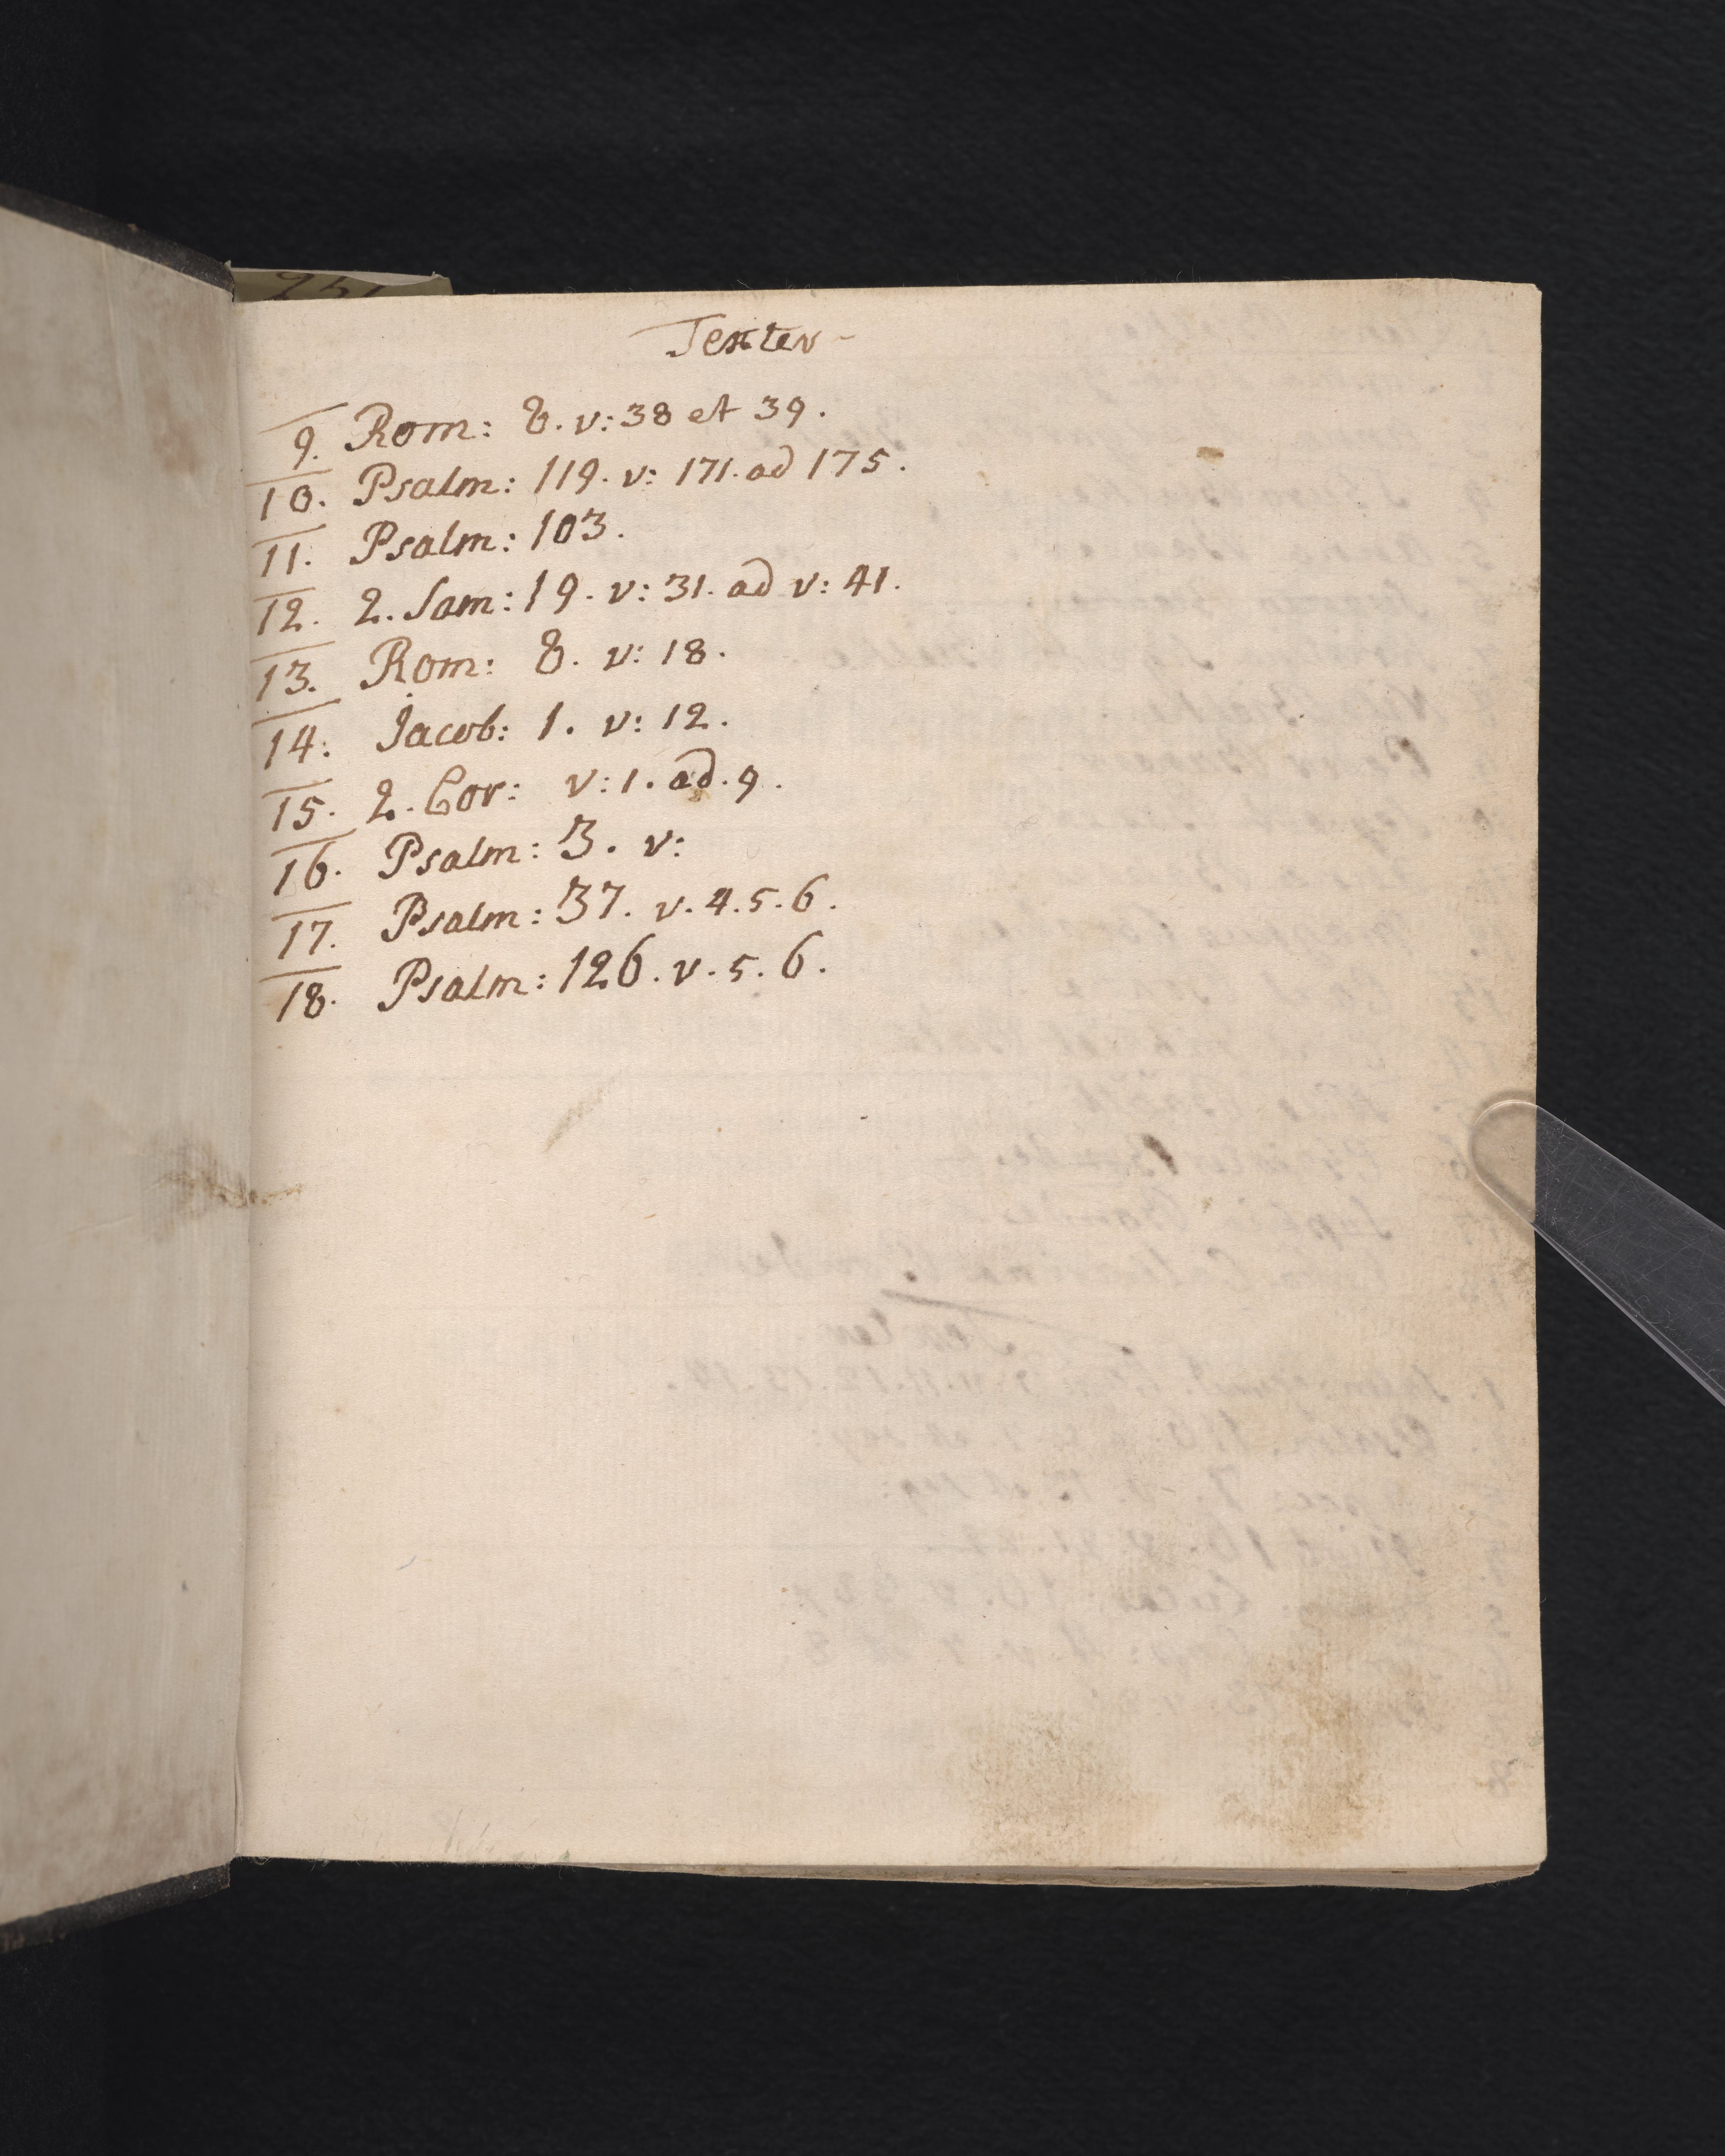 Texter
9. Rom: 8. v: 38 et 39.
10. Psalm: 119. v: 171. ad 175.
11. Psalm: 103.
12. 2. Sam: 19. v: 31. ad v: 41.
13. Rom: 8. v: 18.
14. Jacob: 1. v: 12.
15. 2. Cor: v: 1. ad. 9.
16. Psalm: 3. v:
17. Psalm: 37. v. 4. 5. 6.
18. Psalm: 126. v. 5. 6.